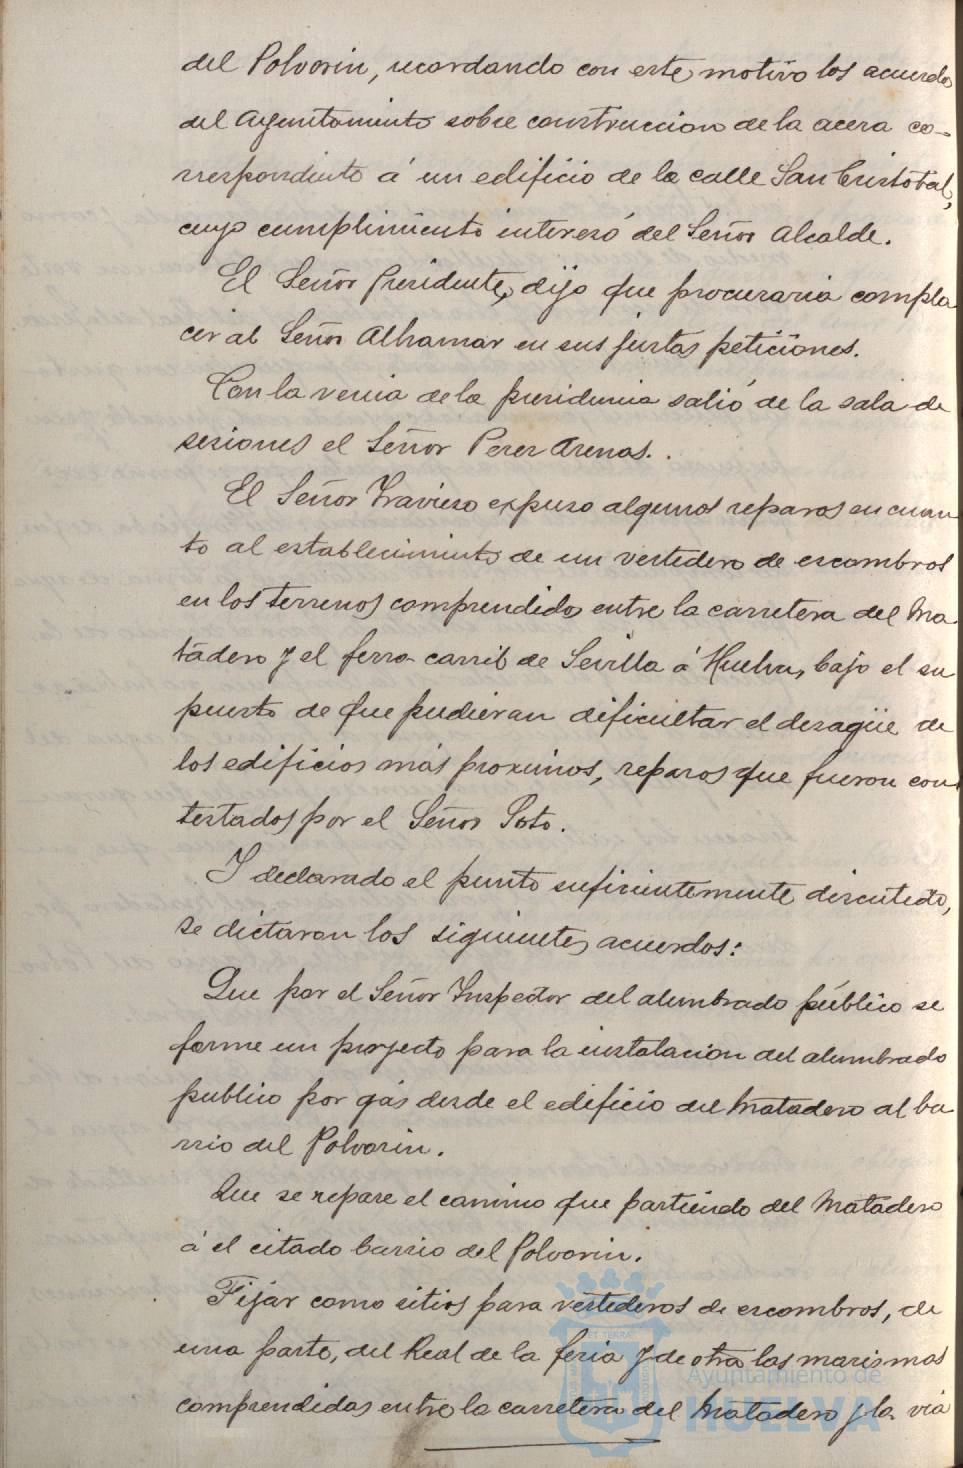 del Polvorin, recordando con este motivo los acuerdos
del Ayuntamiento sobre construccion de la acera co-
rrespondiente á un edificio de la calle San Cristobal,
cuyo cumplimiento interesó del Señor Alcalde.
El Señor Presidente, dijo que procuraria compla
cer al Señor Alhamar en sus justas peticiones.
Con la venia de la presidencia salió de la sala de
sesiones el Señor Perez Arenas.
El Señor Travieso expuso algunos reparos en cuan
to al establecimiento de un vertedero de escombros
en los terrenos comprendidos entre la carretera del Ma
tadero y el ferro-carril de Sevilla á Huelva, bajo el su
puesto de que pudieran dificultar el desagüe de
los edificios más proximos, reparos que fueron con
testados por el Señor Soto.
Y declarado el punto suficientemente discutido,
se dictaron los siguientes acuerdos:
Que por el Señor Inspector del alumbrado público se
forme un proyecto para la instalacion del alumbrado
publico por gás desde el edificio del Matadero al ba
rrio del Polvorin.
Que se repare el camino que partiendo del Matadero
á el citado barrio del Polvorin.
Fijar como sitios para vertederos de escombros, de
una parte, del Real de la feria y de otra las marismas
comprendidas entre la carretera del Matadero y la via
Ayuntamiento de
HUELVA